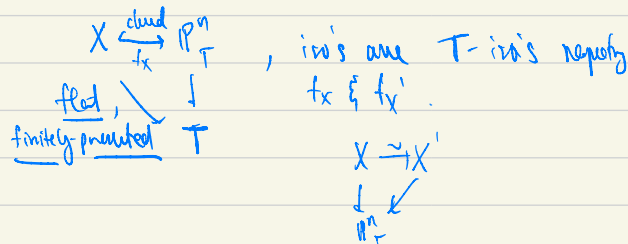 X closed ↪ ℙⁿ_T , iso's are T-iso's respecting
f_X f_X & f_X' .
flat, ↓
finitely-presented T
X ≅→ X'
↓ ↙
ℙⁿ_T